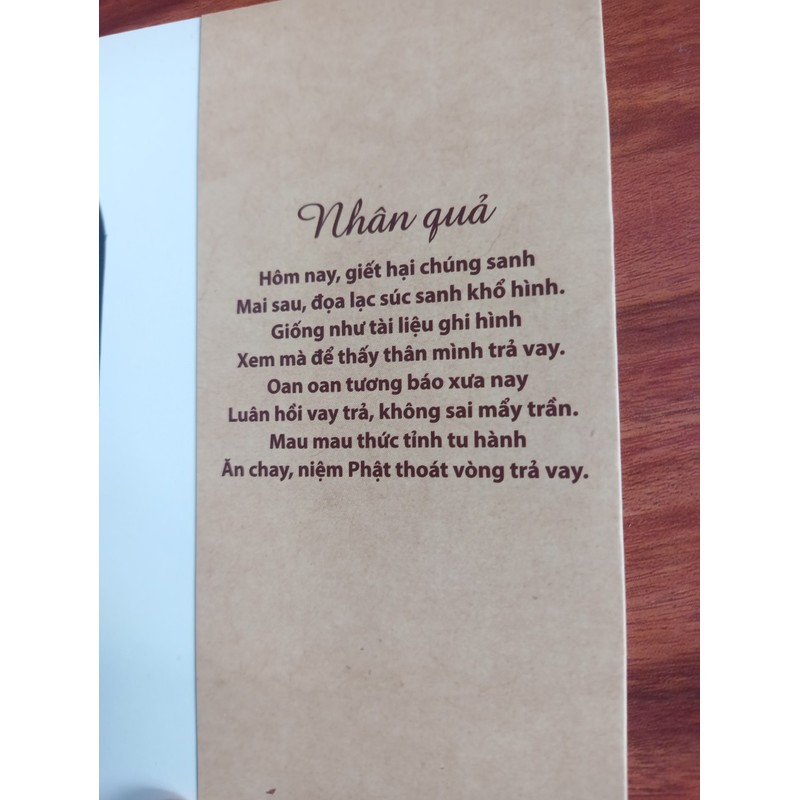 Nhân quả
Hôm nay, giết hại chúng sanh
Mai sau, đọa lạc súc sanh khổ hình.
Giống như tài liệu ghi hình
Xem mà để thấy thân mình trả vay.
Oan oan tương báo xưa nay
Luân hồi vay trả, không sai mẩy trần.
Mau mau thức tỉnh tu hành
Ăn chay, niệm Phật thoát vòng trả vay.